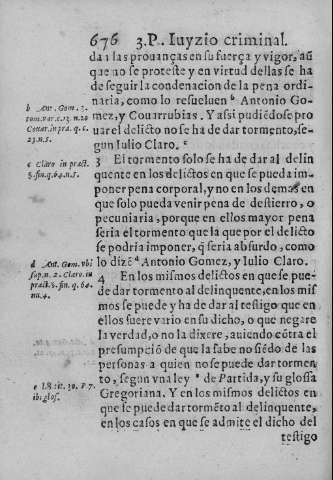 676 3.P. Iuyzio criminal.
da i las prouanças en su fuerça y vigor, aũ
que no se proteste y en virtud dellas se ha
de seguir la condenacion de la pena ordi-
naria, como lo resueluen b Antonio Go-
mez, y Couarrubias. Y assi pudiẽdose pro
uar el delicto no se ha de dar tormento, se-
gun Iulio Claro. c
3 El tormento solo se ha de dar al delin
quente en los delictos en que se pueda im-
poner pena corporal, y no en los demas en
que solo pueda venir pena de destierro, o
pecuniaria, porque en ellos mayor pena
seria el tormento que la que por el delicto
se podria imponer, q̃ seria absurdo, como
lo dizẽ d Antonio Gomez, y Iulio Claro.
4 En los mismos delictos en que se pue-
de dar tormento al delinquente, en los mis
mos se puede y ha de dar al testigo que en
ellos fuere vario en su dicho, o que negare
la verdad, o no la dixere, auiendo cõtra el
presumpciõ de que la sabe no siẽdo de las
personas a quien no se puede dar tormen-
to, segun vna ley e de Partida, y su glossa
Gregoriana. Y en los mismos delictos en
que se puede dar tormẽto al delinquente,
en los casos en que se admite el dicho del
testigo
b Ant. Gom. 3.
tom. var. c. 13. n. 20
Couar. in pra. q. c.
23. n. 5.
c Claro in pract.
§. fin. q. 64. n. 5.
d Ant. Gom. vbi
sup. n. 2. Claro. in
pract. §. fin. q. 64.
nu. 4.
e l. 8. tit. 30. P. 7.
ibi glos.